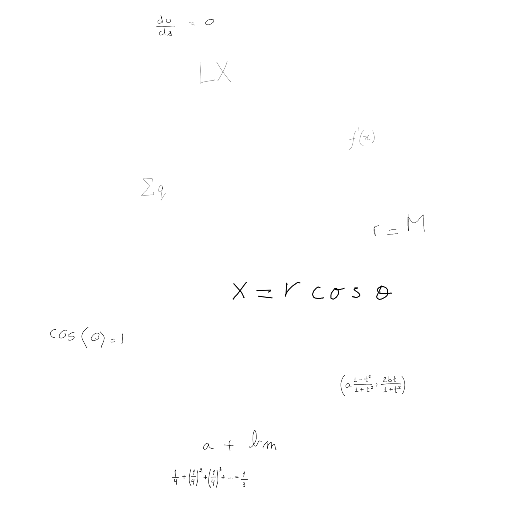 du/ds = 0
LX
f(x)
Σ q
r = M
x = r cos θ
cos(0) = 1
(a (1-t²)/(1+t²), 2bt/(1+t²))
a + bm
1/4 + (1/4)² + (1/4)³ + ... = 1/3